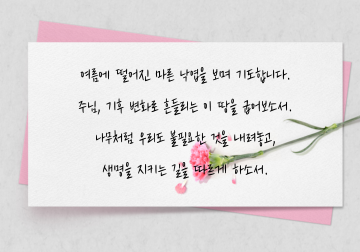 여름에 떨어진 마른 낙엽을 보며 기도합니다.
주님, 기후 변화로 흔들리는 이 땅을 굽어보소서.
나무처럼 우리도 불필요한 것을 내려놓고,
생명을 지키는 길을 따르게 하소서.